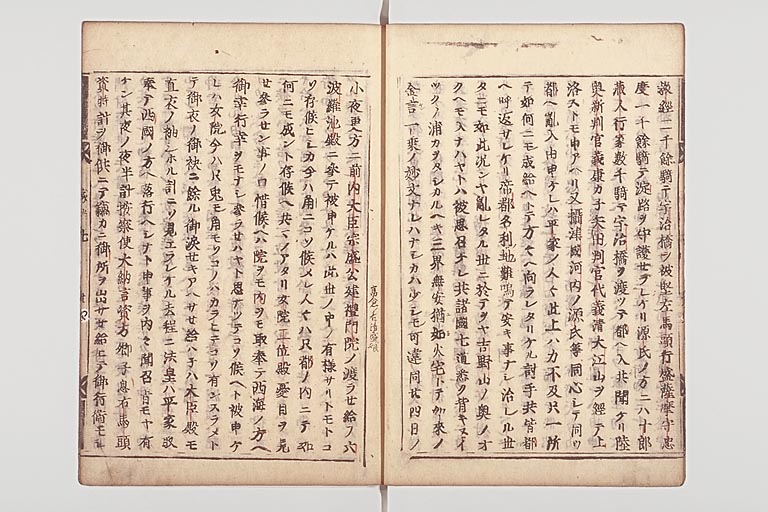 敦経一千余騎テ宇治橋ヲ被堅左馬頭行盛薩摩守忠
度一千餘騎テ淀路ヲ守護セラレケリ源氏ノ方ニハ十郎
蔵人行家数千騎テ宇治橋ヲ渡ッテ都ヘ入共聞ケリ陸
奥新判官義康カ子矢田判官代義清大江山ヲ經テ上
洛ストモ申アヘリ又攝津國河内ノ源氏等同心シテ同ウ
都ヘ亂入由申ケレハ平家ノ人々此上ハカ不及只一所
テ如何ニモ成給ヘトテ方々ヘ向ラレタリケル討手共皆都
ヘ呼返サレケリ帝都名利地雞鳴テ安キ事ナシ治レル世
タニモ如此況ンヤ亂レタル世ニ於テヲヤ吉野山ノ奥ノオ
クヘモ入ナハヤトハ被思召ケレ共諸國七道悉ク背キヌイ
ツクノ浦カヲタシカルヘキ三界無安猶如火宅トテ如来ノ
金言一乗ノ妙文ナレハナシカハ少シモ可違同廿四日ノ
小夜更方ニ前内大臣宗盛公建禮門院ノ渡ラセ給ノ六
波羅池殿ニ参テ被申ケルハ此世ノ中ノ有様サリトモトコ
ソ存候ヒシカ今ハ角ニコソ候メレ人々ハ只都ノ内ニテ如
何ニモ成ント存候ヘ共マノアタリ女院二位殿憂目ヲ見
せ参ラせン事ノ口惜候ヘハ院ヲモ内ヲモ取奉テ西海ノ方ヘ
御幸行幸ヲモナシ参ラせハヤト思ナッテコソ候ヘト被申ケ
レハ女院今ハ只兎モ角モソコノハカラヒテコソ有ンスラメト
テ御衣ノ御袂ニ餘ル御涙せキアヘサせ給ハネハ大臣殿モ
直衣ノ袖シホル計ニソ見エラレケル去程ニ法皇ハ平家取
奉テ西國ノ方ヘ落行ヘシナト申事ヲ内々聞召旨モヤ有
ケン其夜ノ夜半計按察使大納言資方卿子息右馬頭
資時計ヲ御供ニテ竊カニ御所ヲ出サせ給ヒテ御行衛モ